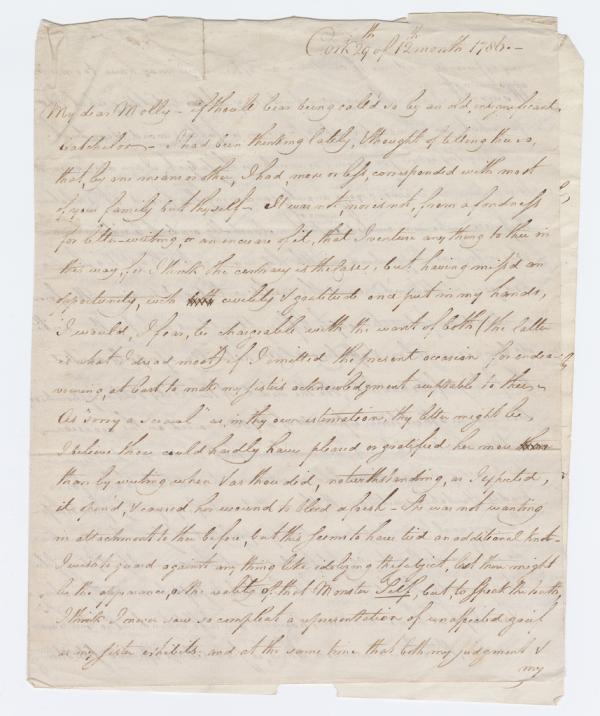 Cork 29th of 12th month 1786.-
My dear Molly - if thou'lt bear being called so by an old, insignificant
batchelor - I had been thinking lately, & thought of telling thee so,
that, by one means or other, I had, more or less, corresponded with most
of your family but thyself - It was not, nor is not, from a fondness
for letter-writing, or an encrease of it, that I venture any thing to thee in
this way, for I think the contrary is the case, but having miss'd an
opportunity, wch civility & gratitude put in my hands,
I would, I fear, be chargeable with the want of both (the latter
is what I dread most) if I omitted the present occasion for endea-
vouring, at least to make my sister's acknowledgment acceptable to thee -
As "sorry a scrawl" as, in thy own estimation, thy letter might be,
I believe thou could hardly have pleased or gratified her more than
than by writing when & as thou did, notwithstanding, as I expected,
it open'd, & caused her wound to bleed afresh - She was not wanting
in attachment to thee before, but this seems to have tied an additional knot -
I wish to guard against any thing like idolizing the subject, lest there might
be the appearance, or the reality of that Monster Self, but, to speak the truth,
I think I never saw so compleat a representation of unaffected grief
as my sister exhibits; and at the same time that both my judgment &
my